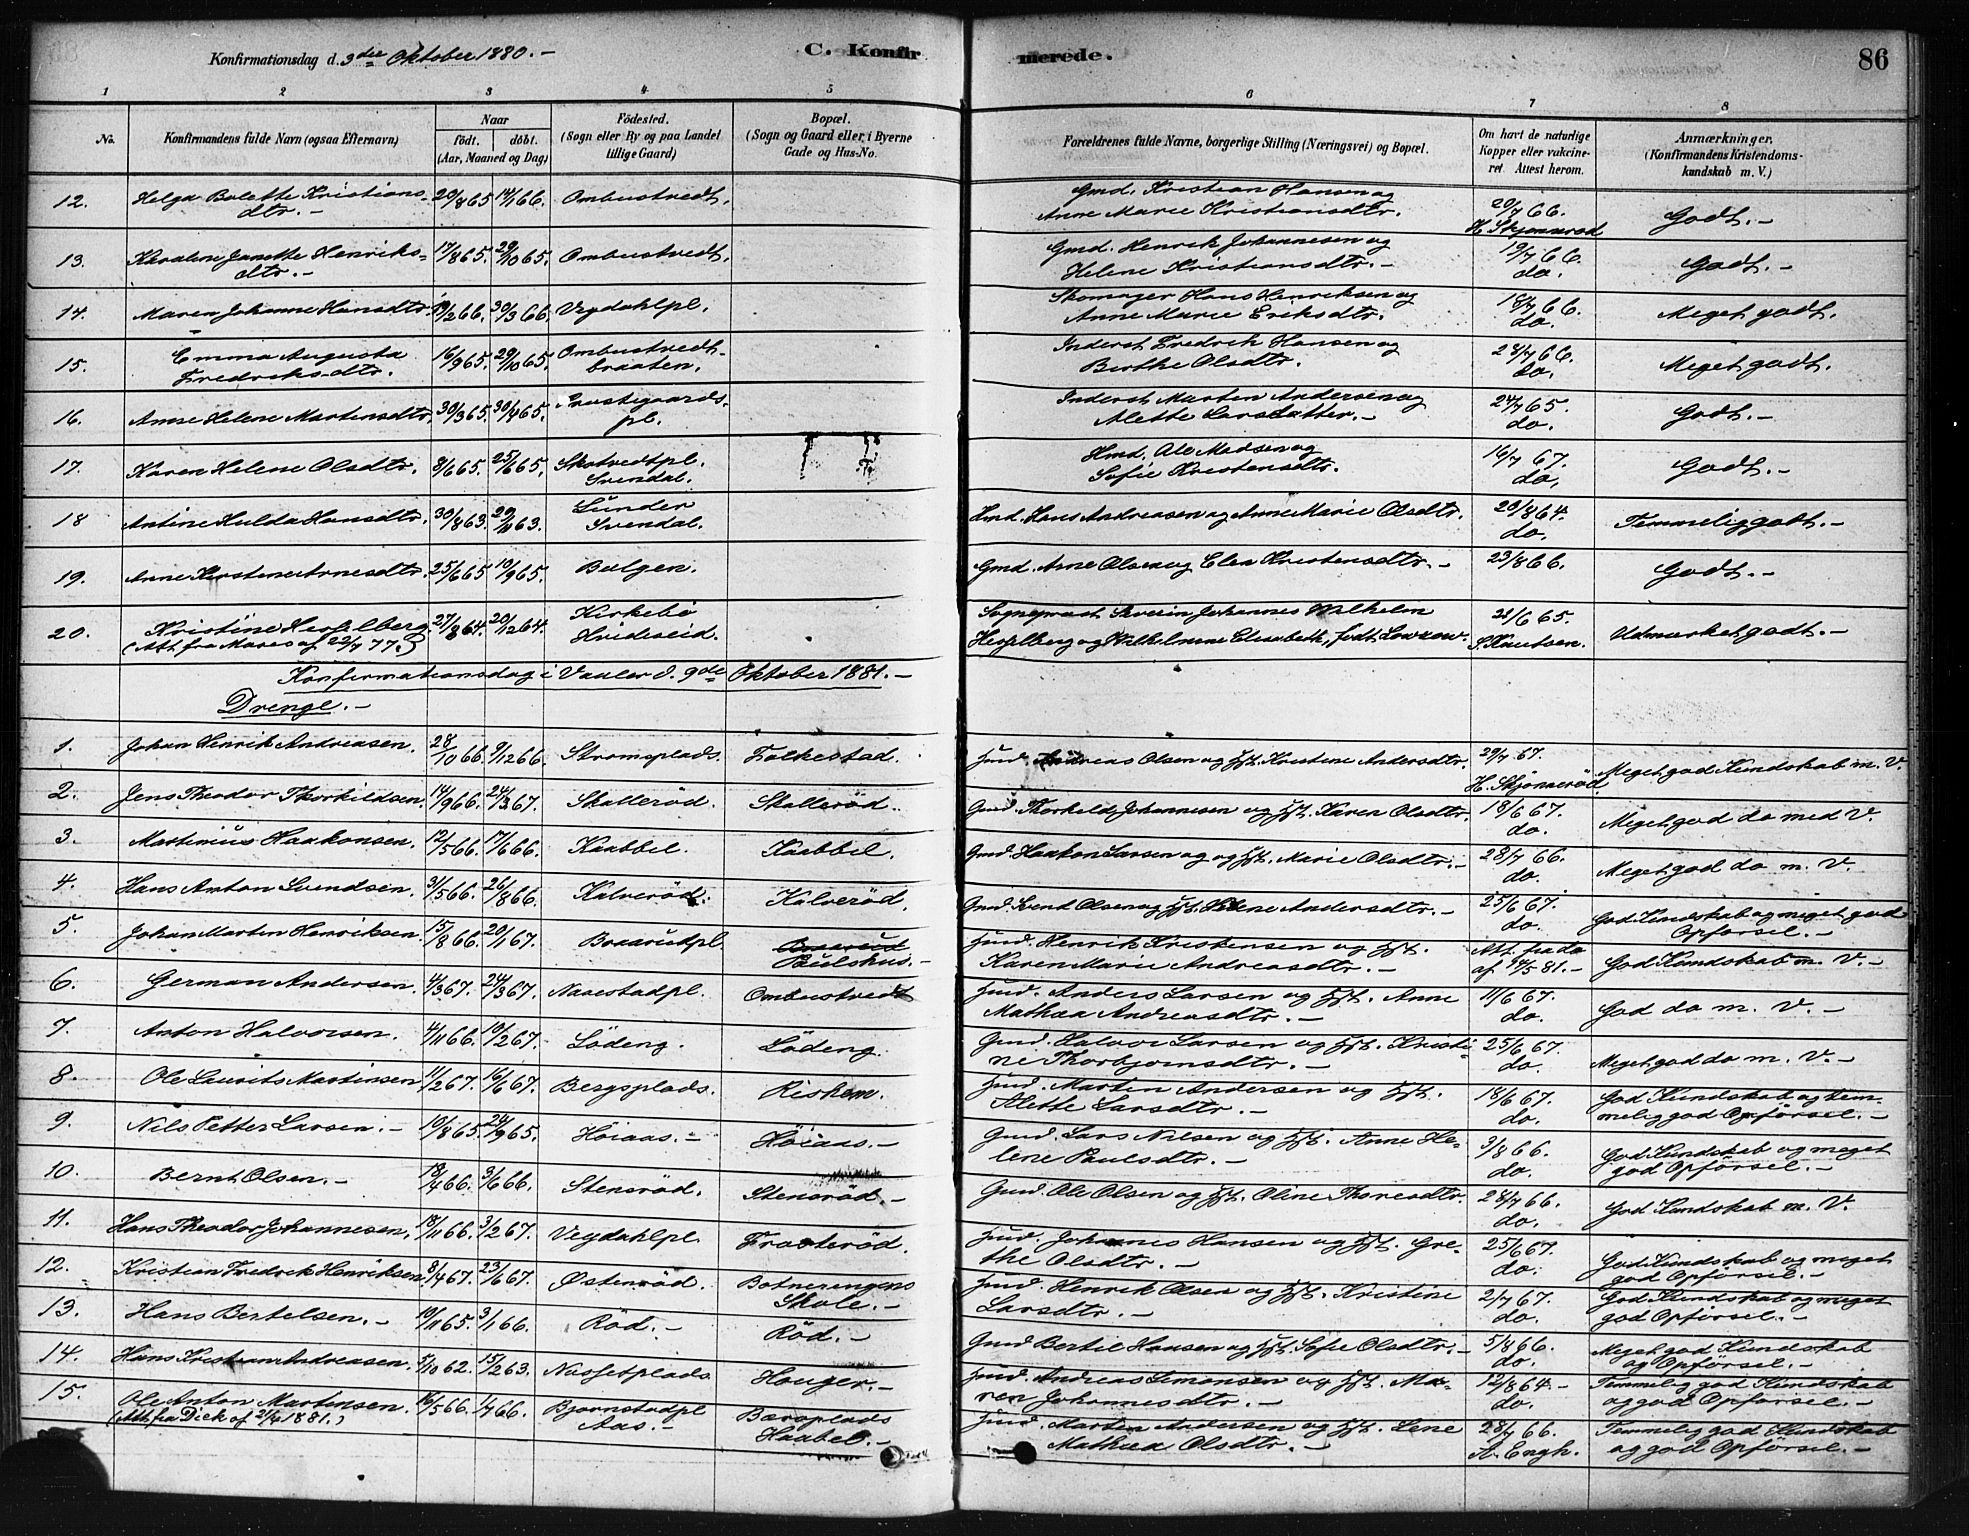 Konfirmationsdag d. 3die Oktober 1880. -
C. Konfir
merede.
86
1 2 3 4 5 6 7 8
No. Konfirmandens fulde Navn (ogsaa Efternavn) Naar födt. döbt. (Aar, Maaned og Dag) Födested. (Sogn eller By og paa Landet tillige Gaard) Bopæl. (Sogn og Gaard eller i Byerne Gade og Hus-No. Forældrenes fulde Navne, borgerlige Stilling (Næringsvei) og Bopæl. Om havt de naturlige Kopper eller vaccineret Attest herom. Anmærkninger, (Konfirmandens Kristendomskundskab m. V.)
12. Helga Bolette Kristians- 20/8 65 14/1 66. Ombustvedt. Gmd. Kristian Hansen og 20/7 66. Godt. -
dtr. - Anne Marie Kristiansdtr. H. Skjønnerød
13. Karoline Janette Henriks- 17/8 65. 29/10 65. Ombustvedt. Gmd. Henrik Johannesen og 19/7 66. Godt. -
dtr. - Helene Kristiansdtr. - do.
14. Maren Johanne Hansdtr. 19/2 66. 30/3 66. Veydahlpl. Skomager Hans Henriksen og 18/7 66. Meget godt.
Anne Marie Eriksdtr. do.
15. Emma Augusta 16/9 65. 29/10 65. Ombustvedt- Inderst Fredrik Hansen og 28/7 66. Meget godt.
Fredriksdtr. braaten. Berthe Olsdtr. do.
16. Anne Helene Martensdtr. 30/3 65. 30/4 65. Prestegaards- Inderst Marten Andersen og 24/7 65. Godt. -
pl. Alette Larsdatter. - do.
17. Karen Helene Olsdtr. 9/6 65. 25/6 65. Skotvedtpl. Hmd. Ole Madsen og 16/7 67. Godt. -
Svendal. Sofie Kristensdtr. do.
18 Antine Hulda Hansdtr. 30/8 63. 29/11 63. Lunder Hmd. Hans Andreasen og Anne Marie Olsdtr. 20/8 64. Temmelig godt. -
Svendal. do.
19. Anne Kirstine Arnesdtr. 25/6 65 10/9 65. Bolgen. Gmd. Arne Olsen og Elen Kristensdtr. - 23/8 66. Godt. -
20. Kristine Hesselberg 27/8 64. 20/12 64. Kirkebø Sogneprest Severin Johannes Wilhelm 21/6 65. Udmærket godt. -
(Att. fra Moss af 22/7 77.) Hvideseid. Hesselberg og Wilhelmine Elisabeth, født Lowzow. S. Knutsen.
Konfirmationsdag i Vaaler d. 9de Oktober 1881. -
Drenge. -
1. Johan Henrik Andreasen. 28/10 66. 9/12 66. Stromsplads. Folkestad. Husmd. Andreas Olsen og Hst. Kristine Andersdtr. 29/7 67. Meget god Kundskab m. V.
H. Skjønnerød.
2. Jens Theodor Thorkildsen. 14/9 66. 24/3 67. Skallerød. Skallerød. Gmd. Thorkild Johannesen og Hst. Karen Olsdtr. 18/6 67. Meget god do med V.
do.
3. Martinius Haakonsen. 12/5 66. 17/6 66. Kaabbel. Kaabbel. Gmd. Haakon Larsen og og Hst. Marie Olsdtr. - 28/7 66. Meget god do m. V.
do.
4. Hans Anton Svendsen. 31/5 66. 26/8 66. Kalverød. Kalverød. Gmd. Svend Olsen og Hst. Helene Andersdtr. - 25/6 67. God Kundskab og meget god
do. Opførsel. -
5. Johan Martin Henriksen. 15/8 66. 20/1 67. Braarudpl. Braarud Husmd. Henrik Kristensen og Hst. Att. fra do God Kundskab m. V. -
Paulshus. - Karen Marie Andreasdtr. - af 14/5 81. -
6. German Andersen 4/3 67. 24/3 67. Naaestadpl. Ombustvedt Husmd. Anders Larsen og Hst. Anne 11/6 67. God do m. V. -
Mathea Andreasdtr. - do.
7. Anton Halvorsen. 4/11 66. 10/2 67. Lödeng. Lödeng. Gmd. Halvor Larsen og Hst. Kristi- 25/6 67. Meget god do m. V. -
ne Thorbjornsdtr. - do.
8. Ole Laurits Martinsen 11/2 67. 16/6 67. Bergsplads. Riskem. Husmd. Martin Andersen og Hst. 18/6 67. God Kundskab og tem-
Alette Larsdtr. - do. melig god Opførsel. -
9. Nils Petter Larsen. - 10/8 65. 24/9 65. Höiaas. - Höiaas. - Gmd. Lars Nilsen og Hst. Anne He- 3/8 66. God Kundskab og meget
lene Paulsdtr. - do. god Opførsel. -
10. Bernt Olsen. - 18/4 66. 3/6 66. Stensröd. Stensröd. - Gmd. Ole Olsen og Hst. Oline Thoresdtr. 28/7 66. God Kundskab m. V.
do.
11. Hans Theodor Johannesen. 18/11 66. 3/2 67. Veydahlpl. Frosteröd. Husmd. Johannes Hansen og Hst. Gre- 25/6 67. God Kundskab og meget
the Olsdtr. - do. god Opførsel. -
12. Kristian Fredrik Henriksen 8/4 67. 23/6 67. Østenröd. Botneringens Husmd. Henrik Olsen og Hst. Kristine 2/7 67. God Kundskab og meget
Skole. - Larsdtr. - do. god Opførsel. -
13. Hans Bertelsen. - 10/11 65. 3/1 66. Röd. - Röd. - Gmd. Bertil Hansen og Hst. Sofie Olsdtr. - 5/8 66. Meget god Kundskab
do. og Opførsel. -
14. Hans Kristian Andreasen. 7/10 62. 15/2 63. Nassetplads. Houger. - Husmd. Andreas Simensen og Hst. Ma- 12/8 64. - Temmelig god Kundskab
ren Johannesdtr. - do. og god Opførsel. -
15. Ole Anton Martensen. 16/5 66. 1/4 66. Bjornstadpl. Bæroplads Husmd. Marten Andersen og Hst. Lene 28/7 66. Temmelig god Kundskab
(Att. fra Dick af 2/4 1881.) Aas. - Kaabel. - Mathea Olsdtr. - A. Engh. og god Opførsel. -